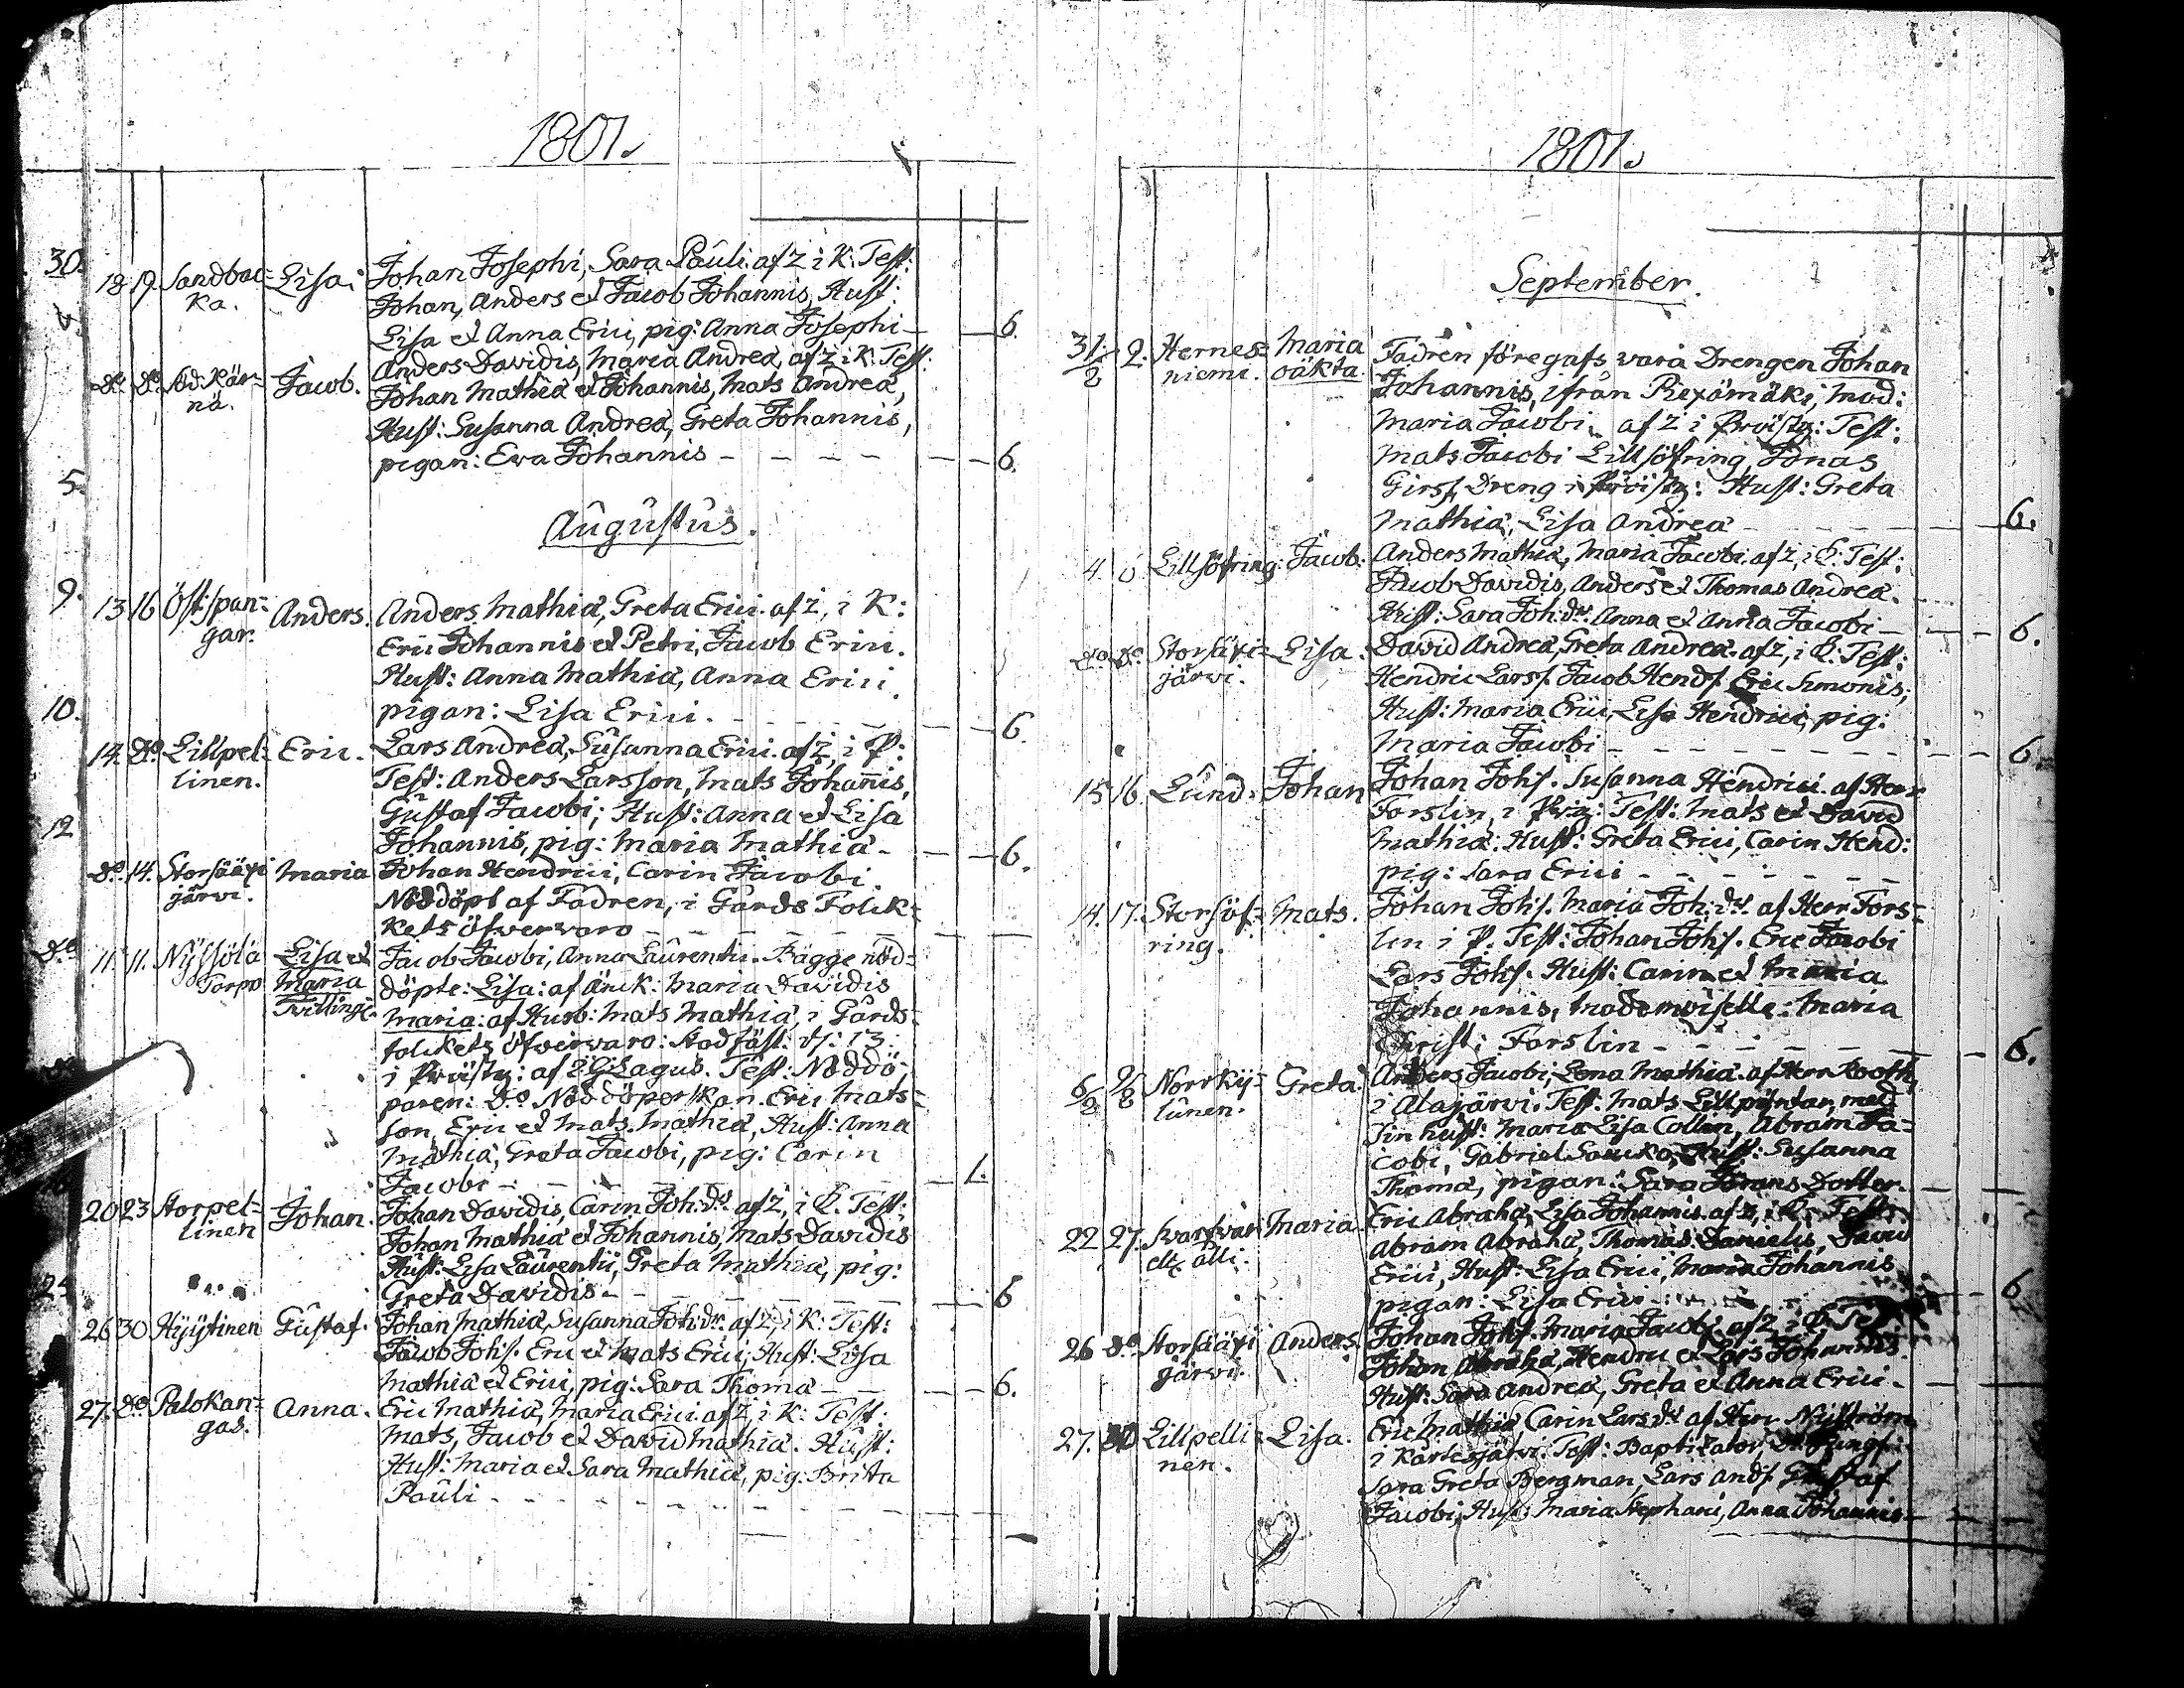 1801.
30.
18 19. Sandbac= Lisa. Johan Josephi, Sara Pauli. af z i K: Test:
ka. Johan, Anders et Jacob Johannis, Hust:
Lisa et Anna Erici, pig: Anna Josephi — — 6.
do. do. Kär= Jacob. Anders Davidis, Maria Andreä, af z i K: Test:
nä. Johan Mathiä et Johannis, Mats Andreä,
Hust: Susanna Andreä, Greta Johannis,
pigan: Eva Johannis — — — — 6.
5.
Augustus.
9.
13 16 Öst:span= Anders. Anders Mathiä, Greta Erici. af z, i K:
gar. Eric Johannis et Petri, Jacob Erici.
Hust: Anna Mathiä, Anna Erici,
10. pigan: Lisa Erici. — — — 6.
14. do. Lillpel= Eric. Lars Andreä, Susanna Erici. af z, i P:
linen. Test: Anders Larsson, Mats Johannis,
Gustaf Jacobi; Hust: Anna et Lisa
12 Johannis, pig: Maria Mathiä — — 6.
do. 14. Storsääxi Maria Johan Hendrici, Carin Jacobi
järvi. Nöddöpt af Fadren, i Gårds Folck=
kets öfvervaro — — — —
do 11. 11. Nylsölä Lisa et Jacob Jacobi, Anna Laurentii. Bägge nöd=
Torpo Maria döpte: Lisa: af änck: Maria Davidis
Tvillingc. Maria: af Husb: Mats Mathiä, i Gårds=
folckets öfvervaro: Stadfäst. d: 13.
i Prästg: af Lagus. Test: Nöddö=
paren: do Nöddöperskan. Eric Mats=
son, Eric et Mats Mathiä, Hust: Anna
Mathiä, Greta Jacobi, pig: Carin
Jacobi — — — — 1.
20 23 Storpel= Johan. Johan Davidis, Carin Joh:dr. af z, i K. Test:
linen Johan Mathiä et Johannis, Mats Davidis
Hust: Lisa Laurentii, Greta Mathiä, pig:
Greta Davidis — — — — 6
26 30 Hyytinen Gustaf. Johan Mathiä, Susanna Joh:dr. af z, i K: Test:
Jacob Johs. Eric et Mats Erici, Hust: Lisa
Mathiä et Erici, pig: Sara Thomä — — 6.
27. do Palokan= Anna. Eric Mathiä, Maria Erici. af z, i K: Test:
gas. Mats, Jacob et David Mathiä. Hust:
Hust: Maria et Sara Mathiä, pig: Brita
Pauli — — — —
1801.
September.
31/8 2. Hernes= Maria Fadren föregafs vara Drengen Johan
niemi. oäkta. Johannis, ifrån Rexämäki, Mod:
Maria Jacobi. af z i Prästg: Test:
Mats Jacobi Lillsöfring, Jonas
Girss, Dreng i Prästg: Hust: Greta
Mathiä, Lisa Andreä — — — 6.
4. 6 Lillsöfring Jacob. Anders Mathiä, Maria Jacobi. af z, i K: Test:
Jacob Davidis, Anders et Thomas Andreä.
Hust: Sara Joh:dr. Anna et Anna Jacobi — — 6.
do do. Storsäxi= Lisa. David Andreä, Greta Andreä. af z, i K: Test:
järvi. Hendric Larss. Jacob Hends. Eric Simonis,
Hust: Maria Erici, Lisa Hendrici, pig:
Maria Jacobi — — — — 6
15 16 Lund. Johan Johan Johs. Susanna Hendrici. af Herr
Forslin, i Prg: Test: Mats et David
Mathiä. Hust: Greta Erici, Carin Hend:
pig: Sara Erici — — — —
14. 17. Storsöf= Mats. Johan Johs. Maria Joh:dr. af Herr Fors=
ring. lin i P. Test: Johan Johs. Eric Jacobi
Lars Johs. Hust: Carin et Maria
Johannis, Mademoiselle: Maria
Christ: Forslin — — — — 6.
6/8 9/8 Norrky= Greta. Anders Jacobi, Lena Mathiä. af Herr Rooth,
lünen. i Alajärvi. Test: Mats Lillpöntar, med
Sin hust: Maria Lisa Collin, Abram Ja=
cobi, Gabriel Sauko, Hust: Susanna
Thomä, pigan: Sara Dotter.
22 27. Svartvar Maria. Eric Abrahä, Lisa Johannis. af z, i K: Test:
Abram Abrahä, Thomas Danielis, David
Erici, Hust: Lisa Erici, Maria Johannis
pigan: Lisa Erici — — 6
26 do Storsääxi Anders. Johan Johs. Maria Jacobi. af z, i K: Test:
järvi. Johan Abrahä, Hendric et Lars Johannis
Hust: Sara Andreä, Greta et Anna Erici —
27. 30 Lillpelli= Lisa. Eric Mathiä Carin Lars dr. af Herr Nyström
nen. i Kortesjärvi. Test: Baptizator. Jungf:
Sara Greta Bergman, Lars Ands. Gustaf
Jacobi, Hust: Maria Stephani, Anna Johannis